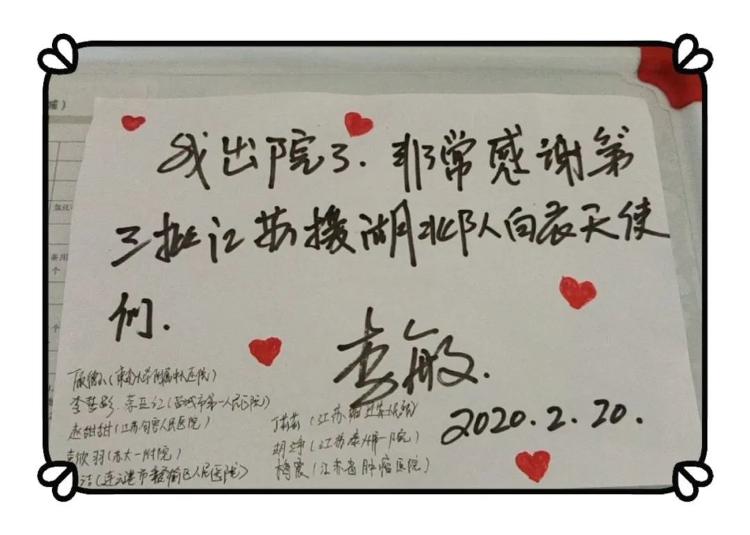 我出院了.非常感谢第
三批江苏援湖北队白衣天使
们.
李敏.
2020.2.20.
(东南大学附属中大医院)
李慧 (盐城市第一人民医院)
赵甜甜(江苏句容人民医院)
羽(苏大一附院)
洁(连云港市赣榆区人民医院)
(江苏
胡 (江苏 一院)
(江苏省肿瘤医院)